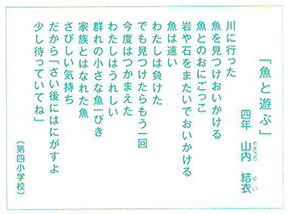 「魚と遊ぶ」
四年　山内　結衣
やまうち　ゆい
川に行った
魚を見つけおいかける
魚とのおにごっこ
岩や石をまたいでおいかける
魚は速い
わたしは負けた
でも見つけたらもう一回
今度はつかまえた
わたしはうれしい
群れの小さな魚一ぴき
家族とはなれた魚
さびしい気持ち
だから「さい後にはにがすよ
少し待っていてね」
（第四小学校）